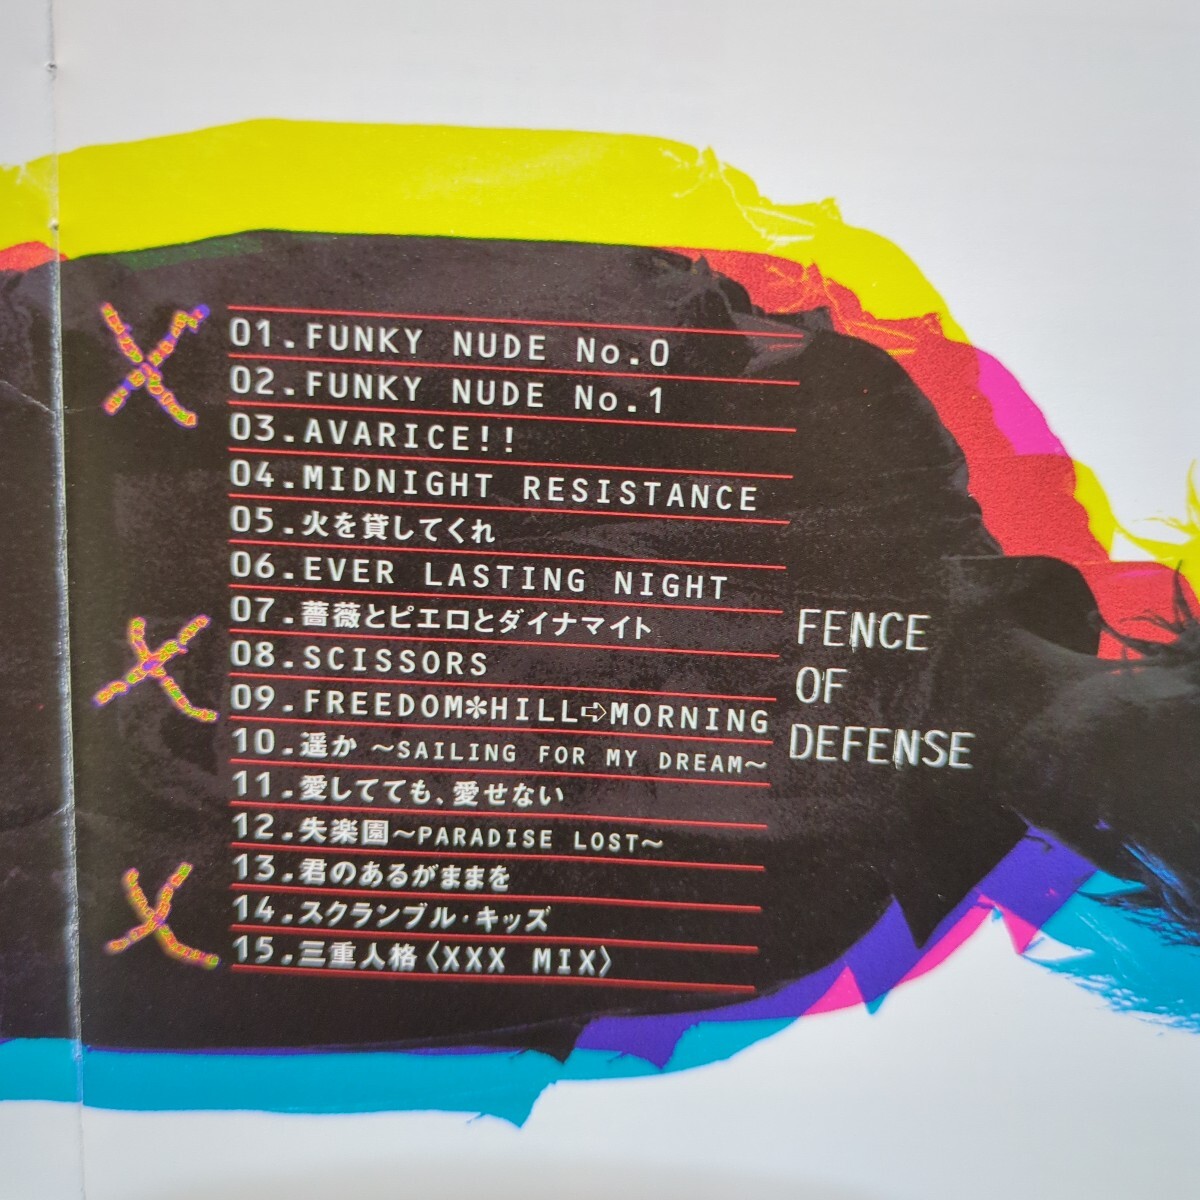 01.FUNKY NUDE No.0
02.FUNKY NUDE No.1
03.AVARICE!!
04.MIDNIGHT RESISTANCE
05.火を貸してくれ
06.EVER LASTING NIGHT
07.薔薇とピエロとダイナマイト
08.SCISSORS
09.FREEDOM✻HILL⇨MORNING
10.遥か 〜SAILING FOR MY DREAM〜
11.愛してても、愛せない
12.失楽園〜PARADISE LOST〜
13.君のあるがままを
14.スクランブル・キッズ
15.三重人格〈XXX MIX〉
FENCE
OF
DEFENSE